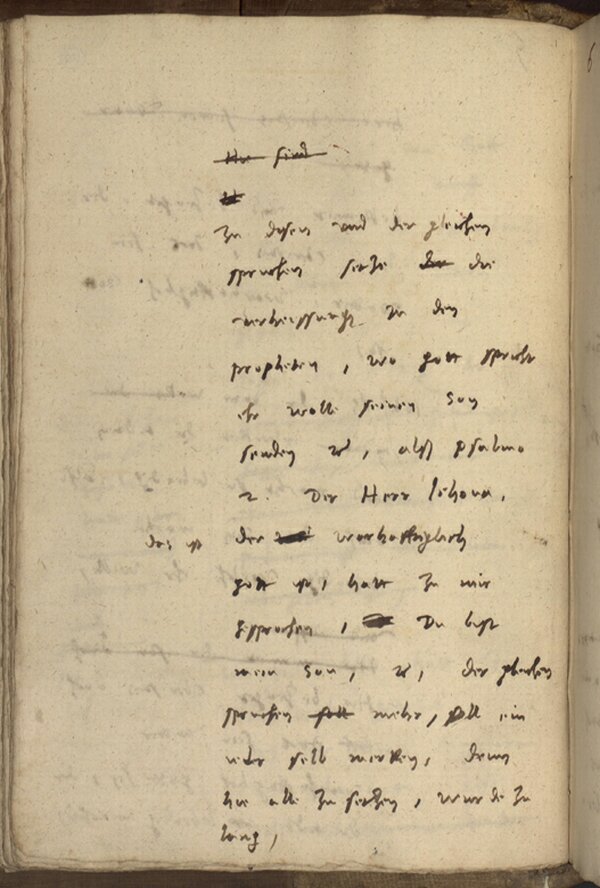 Hie sind
Zu disen und der gleichen
spruchen setze der die
verheissung in den
propheten, wo gott spricht
ehr wolle seinen Son
senden etc, alß psalmo
2. Der Herr Iehova,
das ist der warhafftiglich
gott ist, hatt zu mir
gesprochen, Du bist
mein Son, etc, der gleichen
spruchen soll mehr, soll ein
ieder selb mercken, denn
hie alle zu setzen, wurde zu
lang,